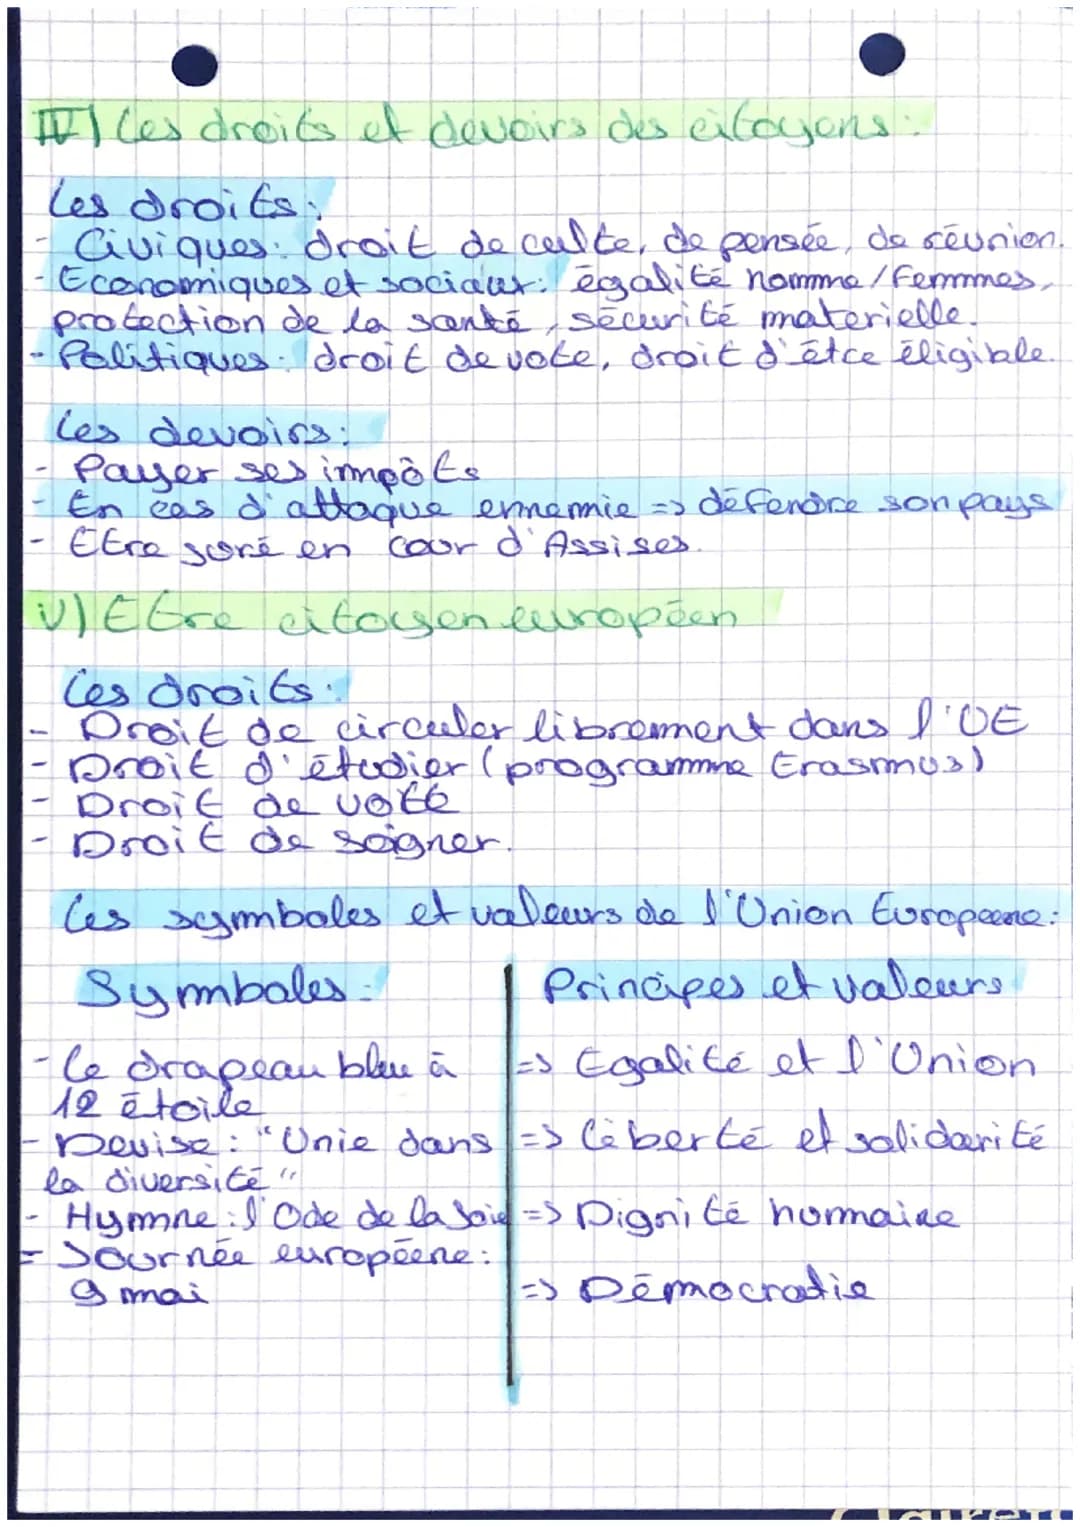 IV) Les droits et devoirs des citoyens :
Les droits :
- Civiques : droit de culte, de pensée, de réunion.
- Economiques et sociaux : égalité homme/femmes,
protection de la santé, sécurité materielle.
- Politiques : droit de vote, droit d'être éligible.
Les devoirs :
- Payer ses impôts
- En cas d'attaque ennemie => défendre son pays
- Etre juré en cour d'Assises.
V) Etre citoyen européen
Les droits :
- Droit de circuler librement dans l'UE
- Droit d'étudier (programme Erasmus)
- Droit de vote
- Droit de soigner.
Les symboles et valeurs de l'Union Européene :
Symboles :
- Le drapeau bleu à
12 étoile
- Devise : "Unie dans
la diversité"
- Hymne : l'Ode de la Joie
- Journée européene :
9 mai
Principes et valeurs
=> Egalité et l'Union
=> Liberté et solidarité
=> Dignité humaine
=> Démocratie